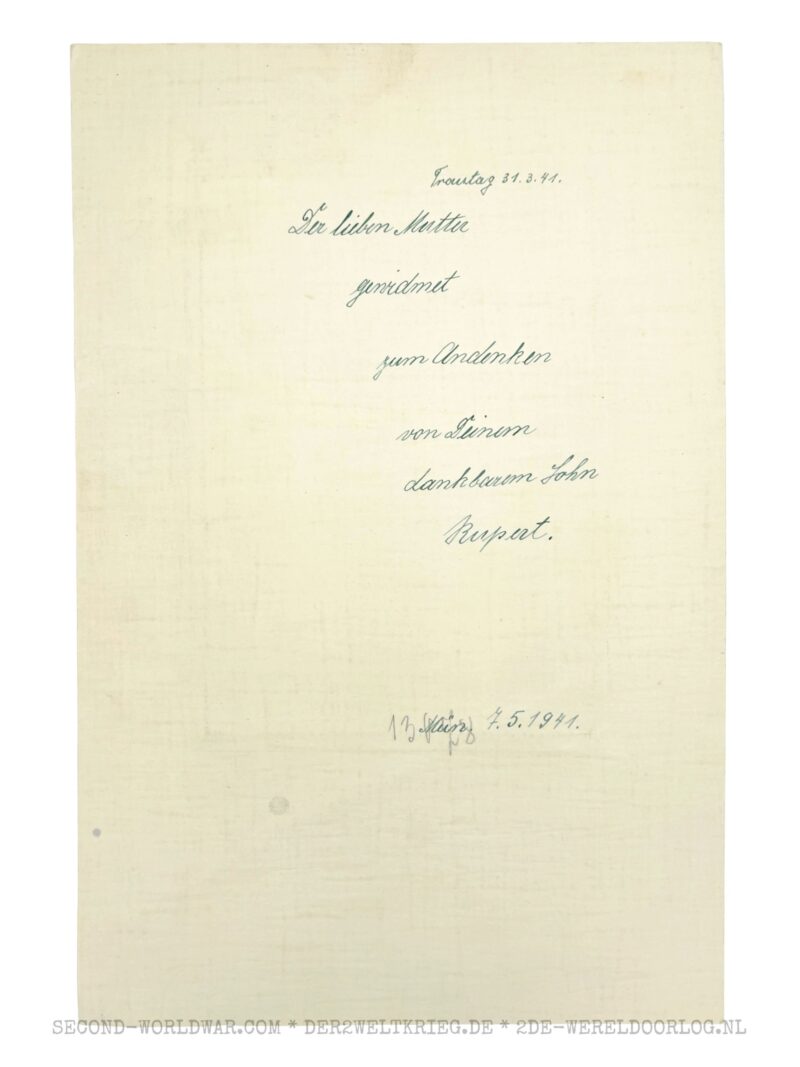 Trautag 31.3.41.
Der lieben Mutter
gewidmet
zum Andenken
von Deinem
dankbarem Sohn
Rupert.
Mün. 7.5.1941.
SECOND-WORLDWAR.COM * DER2WELTKRIEG.DE * 2DE-WERELDOORLOG.NL